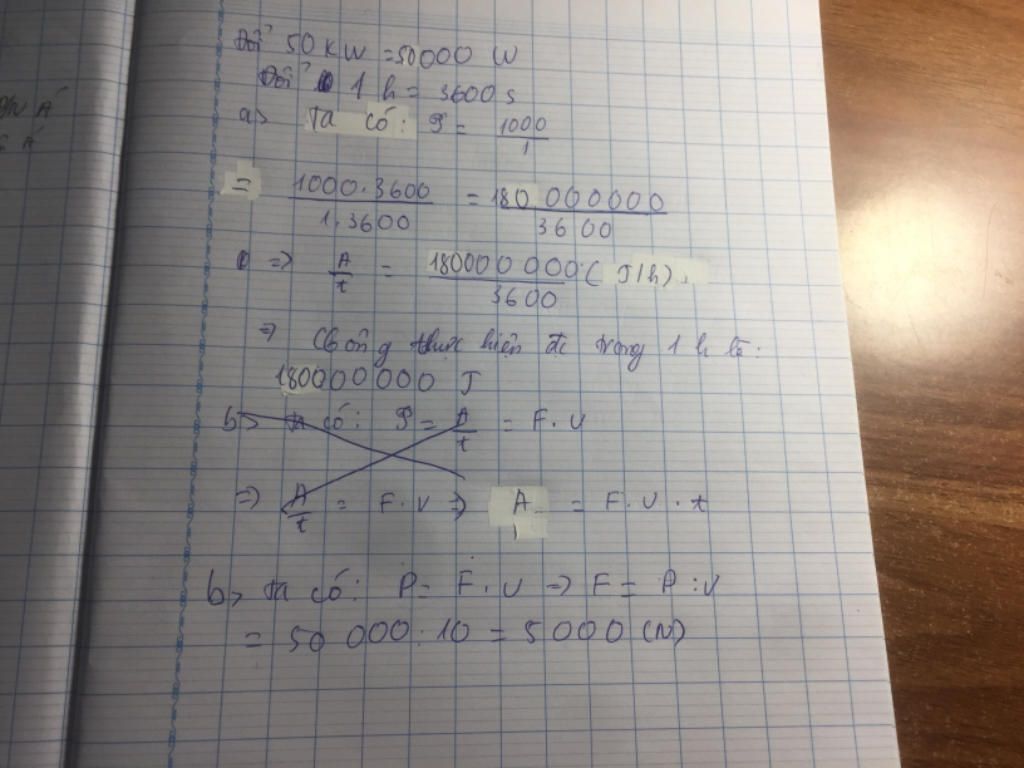 Đổi 50 KW = 50000 W
Đổi 1 h = 3600 s
a> Ta có: P = 1000/1
= 1000.3600/1.3600 = 180 000000/3600
=> A/t = 180000 000/3600 (J/h).
=> Công thực hiện đc trong 1 h là:
180000000 J
b> ta có: P = A/t = F.v
=> A/t = F.v => A = F.v.t
b> Ta có: P = F.v => F = P:v
= 50 000:10 = 5000 (N)